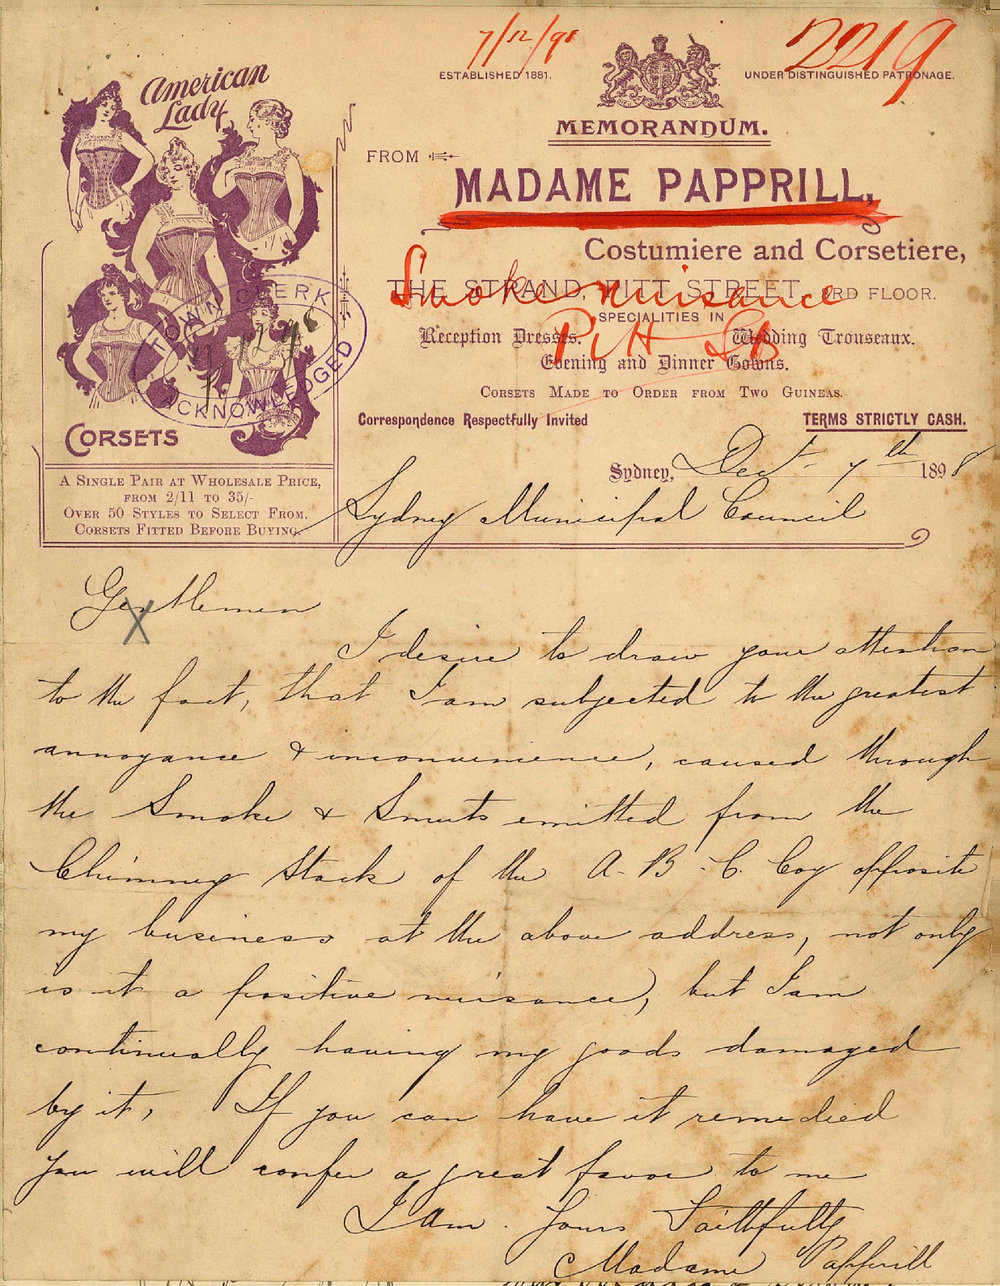 7/12/98
2219
ESTABLISHED 1881.
UNDER DISTINGUISHED PATRONAGE.
American Lady
MEMORANDUM.
FROM
MADAME PAPPRILL,
Costumiere and Corsetiere,
THE STRAND, PITT STREET, 3RD FLOOR.
Smoke nuisance
Pitt St
SPECIALITIES IN
Reception Dresses. Wedding Trouseaux.
Evening and Dinner Gowns.
CORSETS MADE TO ORDER FROM TWO GUINEAS.
Correspondence Respectfully Invited
TERMS STRICTLY CASH.
TOWN CLERK
7 12 98
ACKNOWLEDGED
CORSETS
A SINGLE PAIR AT WHOLESALE PRICE,
FROM 2/11 TO 35/-
OVER 50 STYLES TO SELECT FROM.
CORSETS FITTED BEFORE BUYING.
Sydney, Dect - 7th 1898
Sydney Municipal Council
Gentlemen
X
I desire to draw your attention
to the fact, that I am subjected to the greatest
annoyance & inconvenience, caused through
the Smoke & Smuts emitted from the
Chimney Stack of the A. B. C. Coy opposite
my business at the above address, not only
is it a positive nuisance, but I am
continually having my goods damaged
by it, If you can have it remedied
you will confer a great favor to me
I Am. Yours Faithfully
Madame Papprill